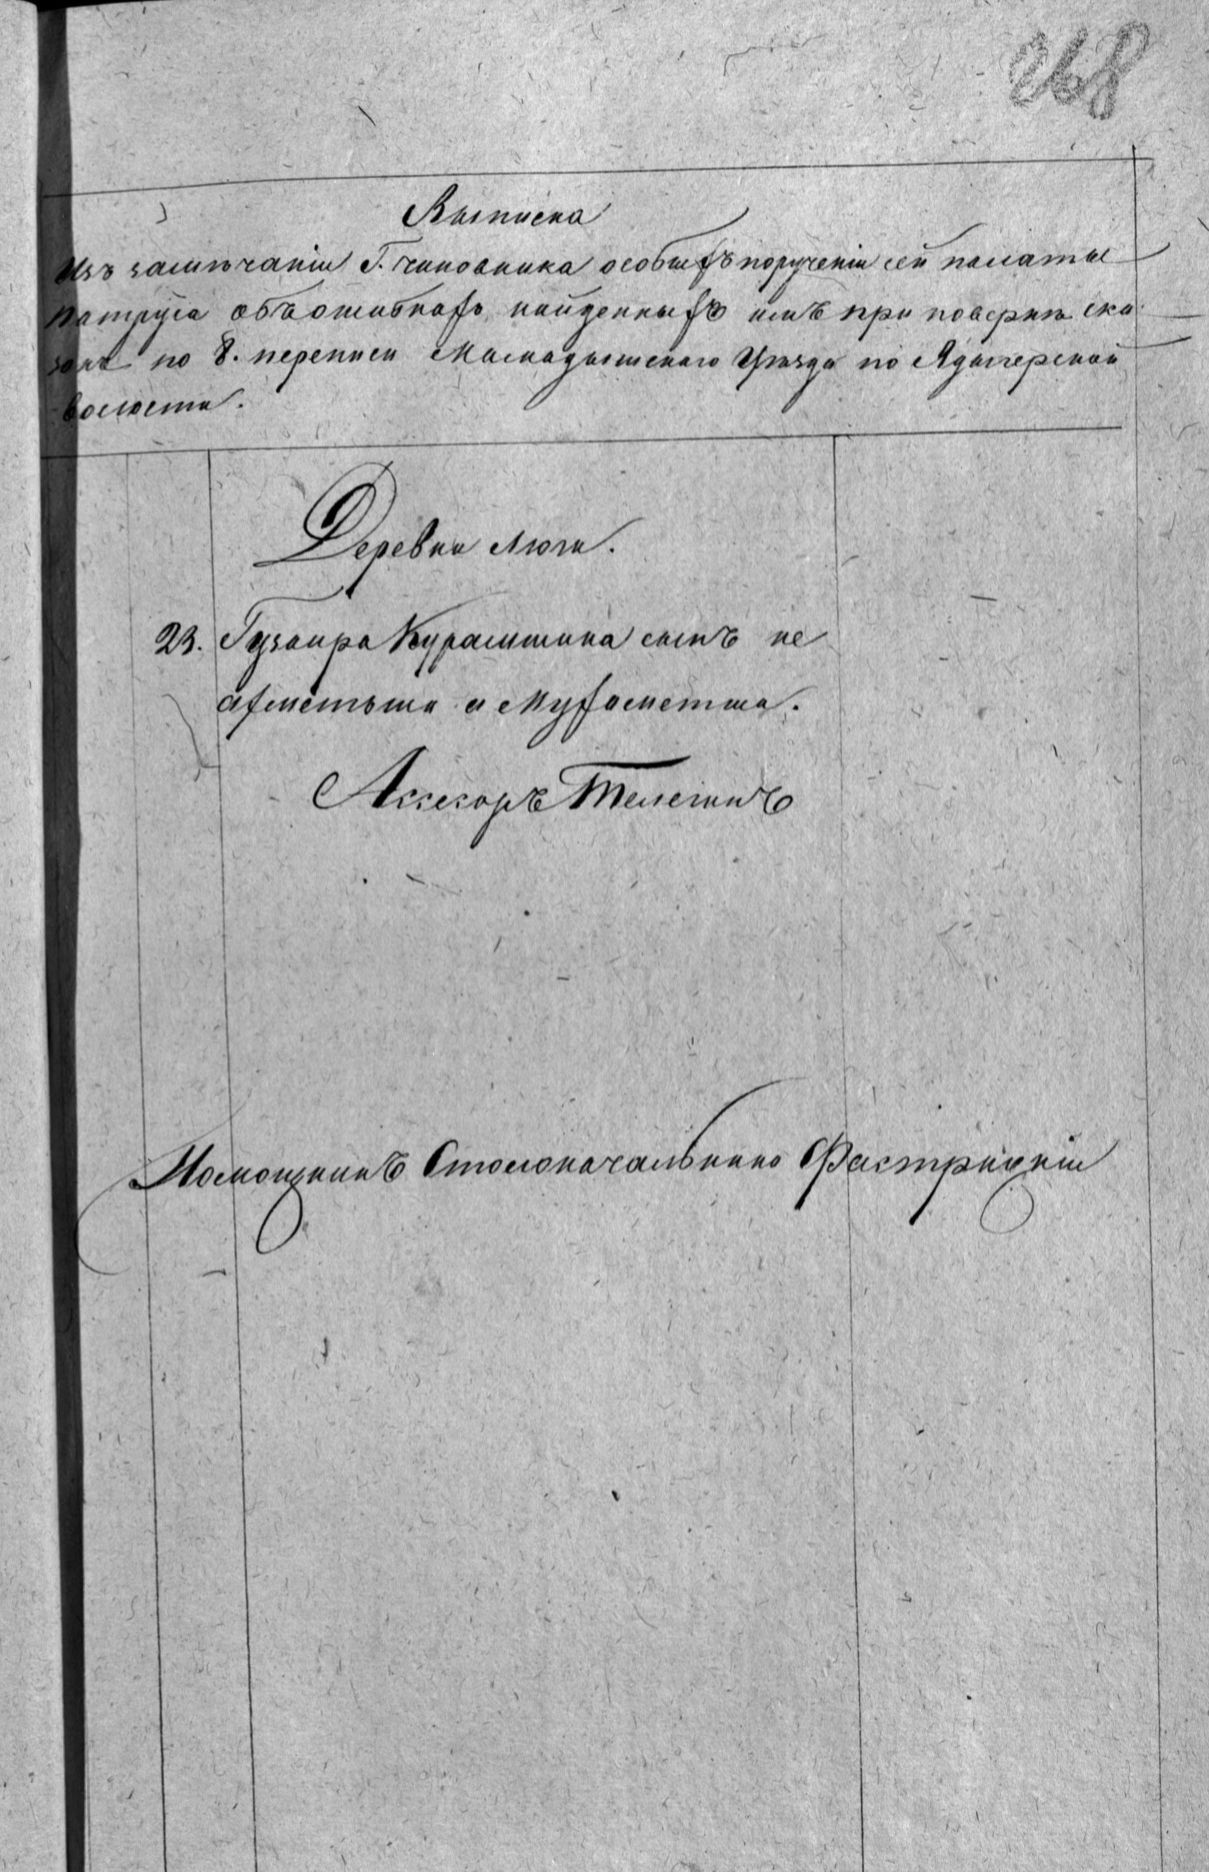 268
Выписка
Изъ замѣчаніи Г. чиновника особыхъ порученіи сей палаты
Патруга объ ошибкахъ найденныхъ имъ при повѣркѣ ска
зокъ по 8. переписи Мамадышскаго Уѣзда по Ядыгерской
волости.
Деревни Люги.
23. Гузаира Курамшина сынъ не
ахметьша а Мухаметша.
Ассесоръ Телегинъ
Помощникъ Столоначальника